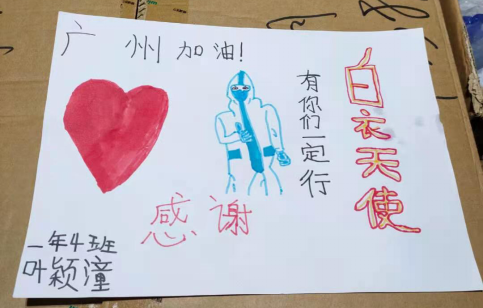 广州加油！
有你们一定行
白衣天使
感谢
一年4班
叶颖潼